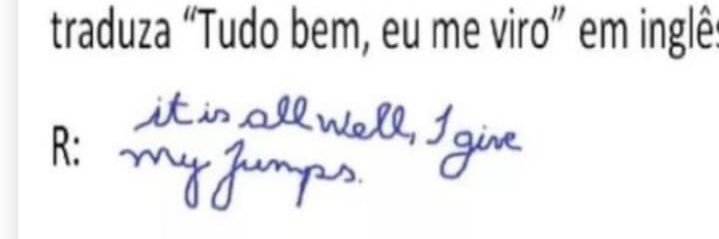 traduza “Tudo bem, eu me viro” em inglês
it is all well, I give
R: my jumps.